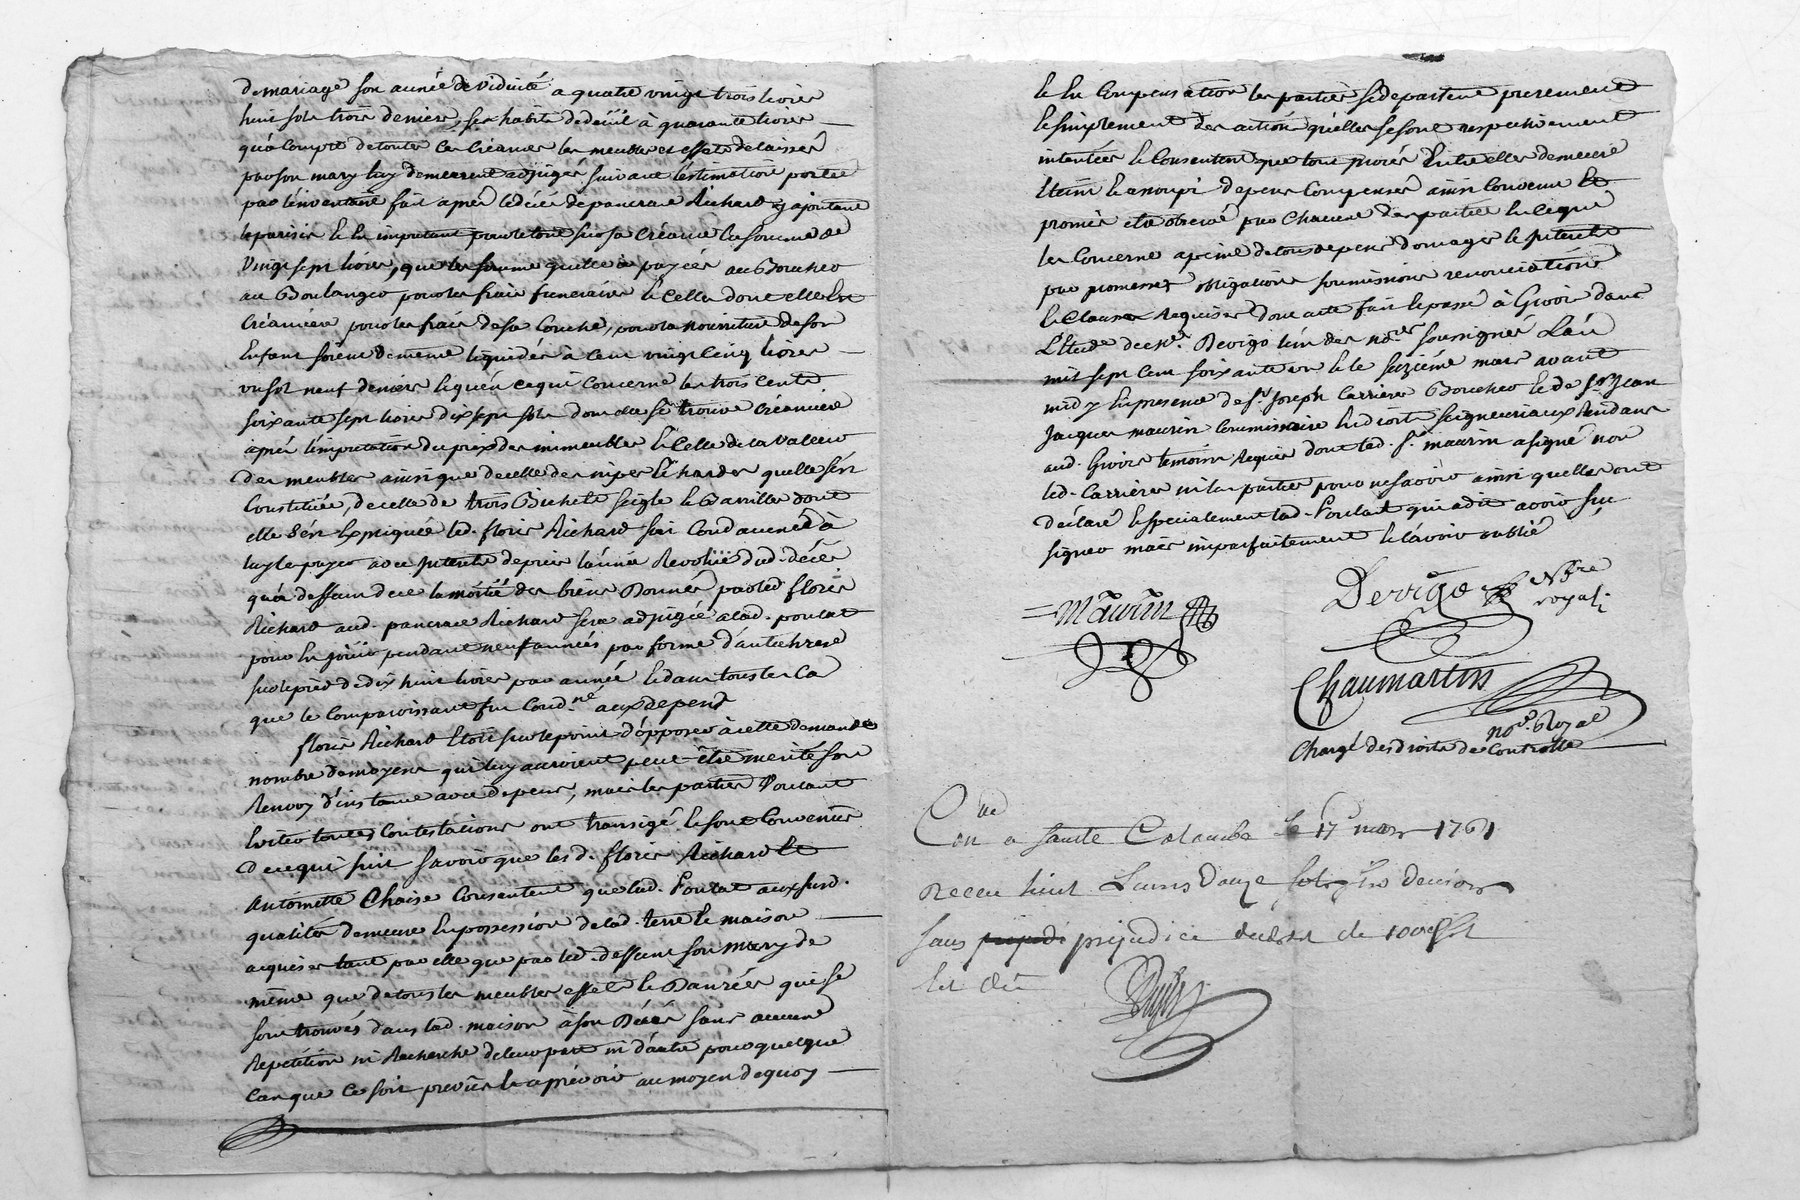 de mariage son année de viduité a quatre vingt trois livres
huit sols trois deniers, ses habits de deüil à quarante livres
qu'a compte de toutes ces créances les meubles et effets delaissés
par son mary luy demeurent adjugés suivant l'estimation portée
par l'inventaire fait après le décès de pancrace Richard y ajoutant
le parisis et en imputant sur sa créance la somme de
vingt sept livres, que les sommes qu'elle a payées au Boucher
au Boulanger pour les frais funeraires et celles dont elle est
créancière pour les frais de sa couche, pour la nourriture de son
enfant soient de meme liquidés à cent vingt cinq livres
un sol neuf deniers et qu'en ce qui concerne les trois cents
soixante sept livres dix sept sols dont elle se trouve créanciere
après l'imputation du prix des immeubles et celle de la valeur
des meubles ainsi que de celle des nipes et hardes qu'elle s'en
constituée, de celle de trois Bichets seigle et Barrilles dont
elle s'en expliquée led. floris Richard soit condamné à
luy le payer avec interets depuis l'année révolüe dud. décès
qu'a deffaut de ce la moitié des biens Donnés par led floris
Richard aud. pancrace Richard sera adjugée a lad. poulat
pour en joüir pendant neuf années par forme d'antichrese
sur le pied de dix huit livres par année et dans tous les cas
que le comparoissant fut cond.né aux depens
floris Richard etoit sur le point d'opposer à cette demande
nombre de moyens qui luy auroient peut-être merité son
Renvoy d'instance avec depens, mais les parties voulant
eviter toutes contestations ont transigé et sont convenues
de ce qui suit savoir que les d. floris Richard et
antoinette Chaise consentent que lad. Poulat aux susd.
qualités demeure en possession de lad. terre et maison
acquises tant par elle que par led. deffunt son mary de
même que de tous les meubles effets et Danrées qui se
sont trouvés dans lad. maison à son Décès sans aucune
Repetition ni Recherche de leur part ni d'autre pour quelque
cas que ce soit prevûs et a prévoir au moyen de quoy
et en compensation les parties se departent purement
et simplement des actions qu'elles se sont respectivement
intentées et consentent que tout procès d'entre elles demeure
eteint et assoupi depens compensés ainsi convenu et
promis etre observé par chacune des parties en ce qui
les concerne a peine de tous depens domages et interets
par promesses obligations soumissions renonciations
et clauses requises dont acte fait et passé à Givors dans
l'Etude de me. Devigo l'un des no.res soussignés L'an
mil sept cent soixante un et le seizième mars avant
midy en presence de s.r Joseph Carriere Boucher et de s.r Jean
Jacques maurin Commissaire en droits seigneuriaux Rendans
aud. Givors temoins requis dont led. s.r maurin a signé non
led. Carriere ni les parties pour ne savoir ainsi qu'elles ont
déclaré et specialement lad. Poulat qui a dit avoir sçu
signer mais imparfaitement et l'avoir oublié
= Maurin
Devigo N.re
royal.
Chaumartin
no.re Royal
Chargé des droits de Controlle
C.lé
a sainte Colombe le 17e mars 1761
Receu huit Livres douze sols deniers
sans prejudice de